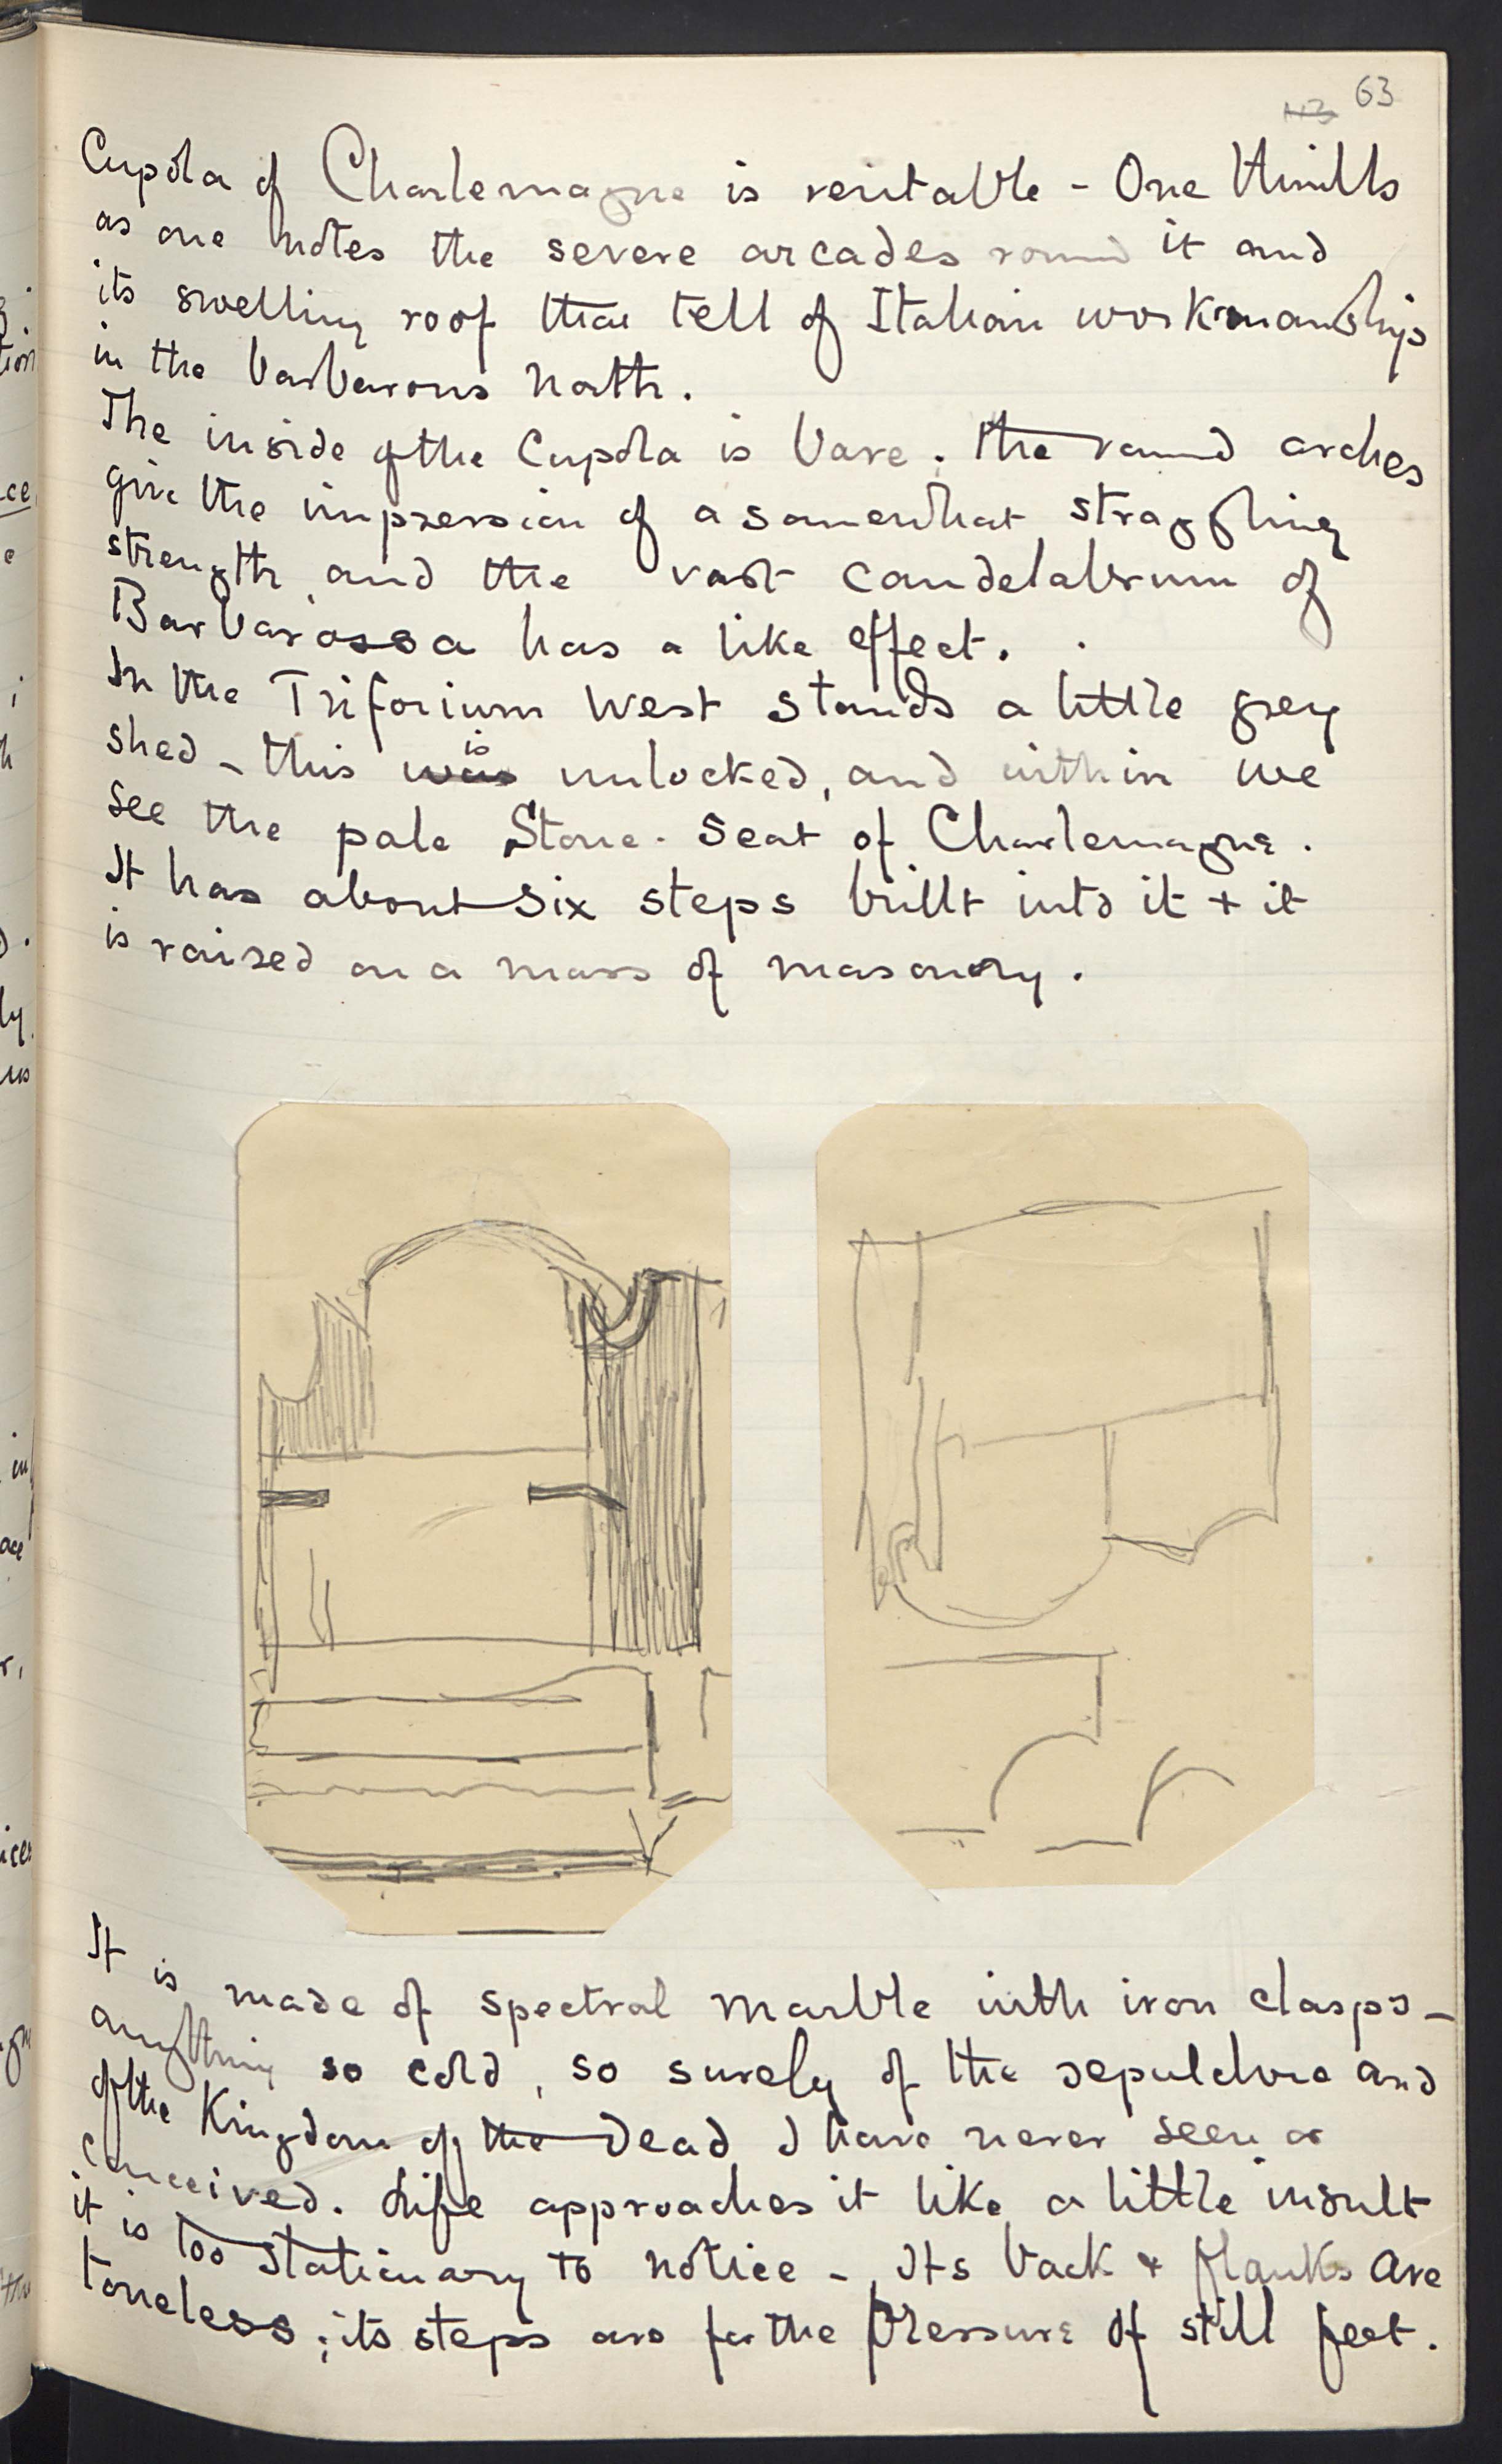 63
Cupola of Charlemagne is veritable - One thrills
as one notes the severe arcades round it and
its swelling roof that tell of Italian workmanship
in the barbarous North.
The inside of the Cupola is bare. The round arches
give the impression of a somewhat straggling
strength, and the vast candelabrum of
Barbarossa has a like effect.
In the Triforium West stands a little grey
shed - this was is unlocked, and within we
see the pale Stone-Seat of Charlemagne.
It has about six steps built into it + it
is raised on a mass of masonry.
It is made of spectral marble with iron clasps -
anything so cold, so surely of the sepulchre and
of the Kingdom of the Dead I have never seen or
conceived. Life approaches it like a little insult
it is too stationary to notice - Its back + flanks are
toneless; its steps are for the pressure of still feet.